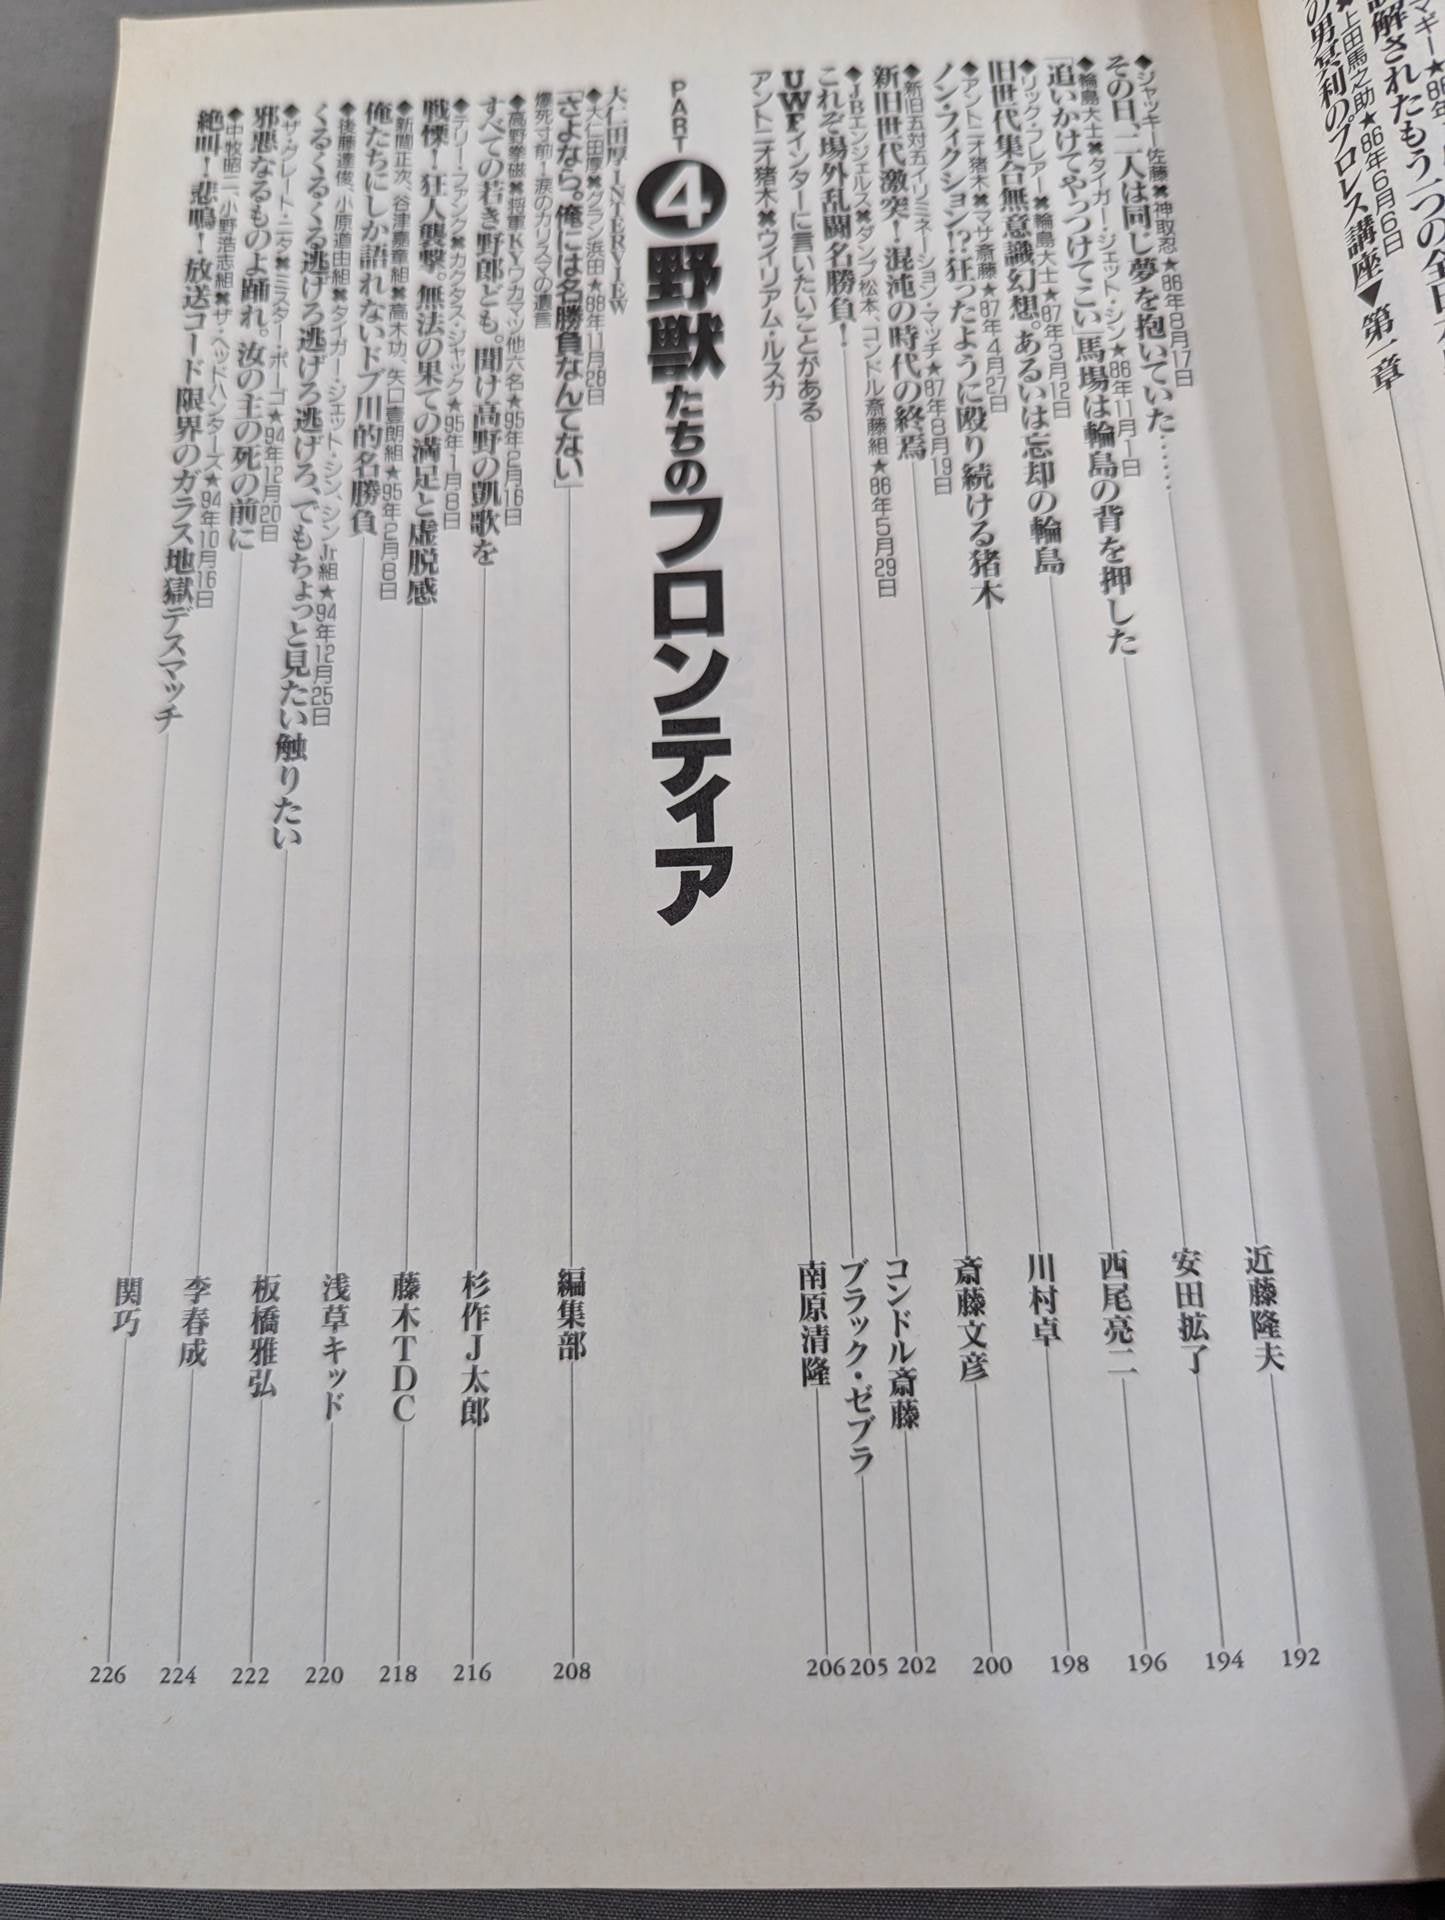 上田馬之助★86年6月6日
の男冥利のプロレス講座▼第一章
◆ジャッキー佐藤✖神取忍★86年8月17日
その日、二人は同じ夢を抱いていた……
近藤隆夫
192
◆輪島大士✖タイガー・ジェット・シン★86年11月1日
「追いかけてやっつけてこい」馬場は輪島の背を押した
安田拡了
194
◆リック・フレアー✖輪島大士★87年3月12日
旧世代集合無意識幻想。あるいは忘却の輪島
西尾亮二
196
◆アントニオ猪木✖マサ斎藤★87年4月27日
ノン・フィクション?狂ったように殴り続ける猪木
川村卓
198
◆新旧五対五イリミネーション・マッチ★87年8月19日
新旧世代激突!混沌の時代の終焉
斎藤文彦
200
◆JBエンジェルス✖ダンプ松本、コンドル斎藤組★86年5月29日
これぞ場外乱闘名勝負!
コンドル斎藤
202
ブラック・ゼブラ
205
UWFインターに言いたいことがある
アントニオ猪木✖ウイリアム・ルスカ
南原清隆
206
PART 4 野獣たちのフロンティア
大仁田厚・INTERVIEW
◆大仁田厚✖グラン浜田★88年11月28日
「さよなら。俺には名勝負なんてない」
爆死寸前!涙のカリスマの遺言
編集部
208
◆高野拳磁✖将軍KYワカマツ他六名★95年2月16日
すべての若き野郎ども。聞け高野の凱歌を
杉作J太郎
216
◆テリー・ファンク✖カクタス・ジャック★95年1月8日
戦慄!狂人襲撃。無法の果ての満足と虚脱感
藤木TDC
218
◆新間正次、谷津嘉章組✖高木功、矢口壹朗組★95年2月8日
俺たちにしか語れないドブ川的名勝負
浅草キッド
220
◆後藤達俊、小原道由組✖タイガー・ジェット・シン、シンJr組★94年12月25日
くるくるくる逃げろ逃げろ逃げろ、でもちょっと見たい触りたい
板橋雅弘
222
◆ザ・グレート・ニタ✖ミスター・ポーゴ★94年12月20日
邪悪なるものよ踊れ。汝の主の死の前に
李春成
224
◆中牧昭二、小野浩志組✖ザ・ヘッドハンターズ★94年10月16日
絶叫!悲鳴!放送コード限界のガラス地獄デスマッチ
関巧
226